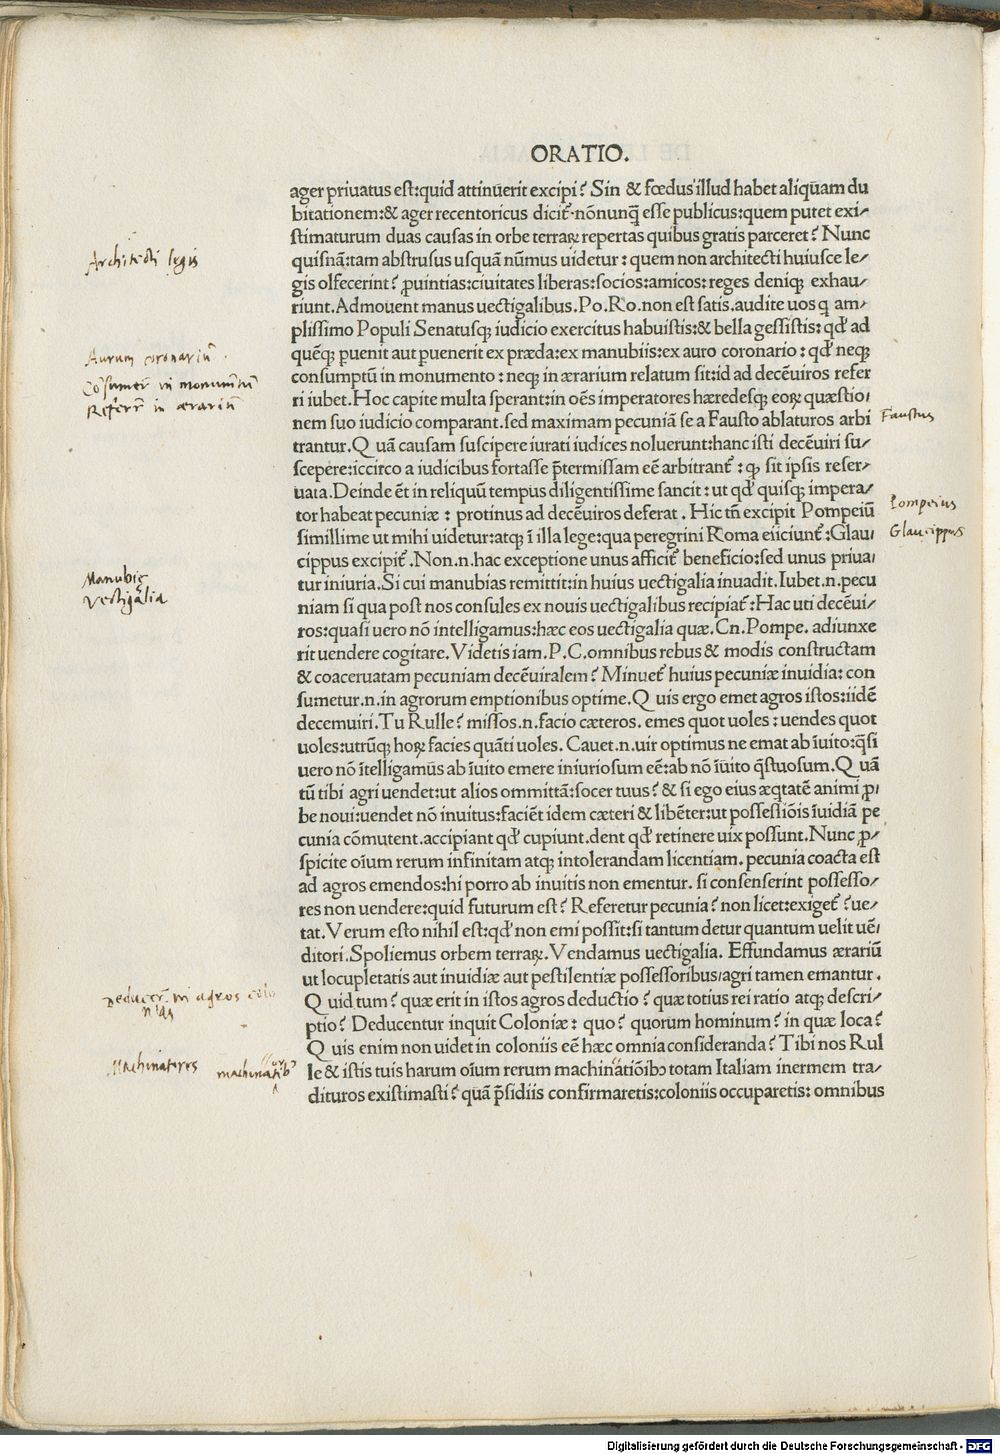 ORATIO.
ager priuatus est:quid attinuerit excipi? Sin & fœdus illud habet aliquam du
bitationem:& ager recentoricus dicit̃ nōnunq̃ esse publicus:quem putet exi/
stimaturum duas causas in orbe terraꝝ repertas quibus gratis parceret? Nunc
quisnā:tam abstrusus usquā nūmus uidetur: quem non architecti huiusce le/
gis olfecerint? ꝓuintias:ciuitates liberas:socios:amicos:reges deniqꝫ exhau/
riunt.Admouent manus uectigalibus.Po.Ro.non est satis.audite uos q am/
plissimo Populi Senatusqꝫ iudicio exercitus habuistis:& bella gessistis: qd' ad
quēqꝫ ꝑuenit aut ꝑuenerit ex præda:ex manubiis:ex auro coronario: qd' neqꝫ
consumptū in monumento: neqꝫ in ærarium relatum sit:id ad decēuiros refer
ri iubet.Hoc capite multa sperant:in oēs imperatores hæredesqꝫ eoꝝ quæstio/
nem suo iudicio comparant.sed maximam pecuniā se a Fausto ablaturos arbi
trantur.Quā causam suscipere iurati iudices noluerunt:hanc isti decēuiri su/
scepere:iccirco a iudicibus fortasse p̃termissam eē arbitrant̃: ꝙ sit ipsis reser/
uata.Deinde ēt in reliquū tempus diligentissime sancit: ut qd' quisqꝫ impera/
tor habeat pecuniæ: protinus ad decēuiros deferat. Hic tn̄ excipit Pompeiū
simillime ut mihi uidetur:atqꝫ ī illa lege:qua peregrini Roma eiiciunt̃:Glau/
cippus excipit̃.Non.n.hac exceptione unus afficit̃ beneficio:sed unus priua/
tur iniuria.Si cui manubias remittit:in huius uectigalia inuadit.Iubet.n.pecu
niam si qua post nos consules ex nouis uectigalibus recipiat̃:Hac uti decēui/
ros:quasi uero nō intelligamus:hæc eos uectigalia quæ.Cn.Pompe. adiunxe
rit uendere cogitare.Videtis iam.P.C.omnibus rebus & modis constructam
& coaceruatam pecuniam decēuiralem? Minuet̃ huius pecuniæ inuidia: con
sumetur.n.in agrorum emptionibus optime.Quis ergo emet agros istos:iidē
decemuiri.Tu Rulle? missos.n.facio cæteros. emes quot uoles: uendes quot
uoles:utrūqꝫ hoꝝ facies quāti uoles. Cauet.n.uir optimus ne emat ab īuito:q̃si
uero nō ītelligamus ab īuito emere iniuriosum eē:ab nō īuito q̃stuosum.Quā
tū tibi agri uendet:ut alios ommittā:socer tuus? & si ego eius æq̃tatē animi ꝓ/
be noui:uendet nō inuitus:faciēt idem cæteri & libēter:ut possessiōis īuidiā pe
cunia cōmutent.accipiant qd' cupiunt.dent qd' retinere uix possunt.Nunc ꝓ/
spicite oīum rerum infinitam atqꝫ intolerandam licentiam. pecunia coacta est
ad agros emendos:hi porro ab inuitis non ementur. si consenserint possesso/
res non uendere:quid futurum est? Referetur pecunia? non licet:exiget̃? ue/
tat.Verum esto nihil est:qd' non emi possit:si tantum detur quantum uelit uē/
ditori.Spoliemus orbem terraꝝ.Vendamus uectigalia. Effundamus ærariū
ut locupletatis aut inuidiæ aut pestilentiæ possessoribus/agri tamen emantur.
Quid tum? quæ erit in istos agros deductio? quæ totius rei ratio atqꝫ descri/
ptio? Deducentur inquit Coloniæ: quo? quorum hominum? in quæ loca?
Quis enim non uidet in coloniis eē hæc omnia consideranda? Tibi nos Rul
le & istis tuis harum oīum rerum machinatiōibꝫ totam Italiam inermem tra/
dituros existimasti? quā p̃sidiis confirmaretis:coloniis occuparetis: omnibus
Architecti legis
Aurum coronariū.
Cōsumer̃ in monumētū
Referr̃ in ærariū
Faustus
Pompeius
Glaucippus
Manubie
Vectigalia
Deducer̃ in agros colo
nias
Machinatores
Digitalisierung gefördert durch die Deutsche Forschungsgemeinschaft - DFG